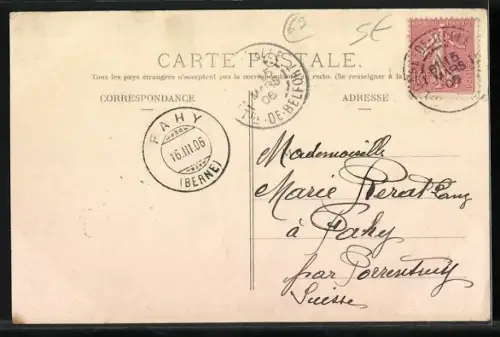 62 St
CARTE POSTALE.
Tous les pays étrangers n'acceptent pas la correspondance au recto. (Se renseigner à la
CORRESPONDANCE
ADRESSE
DELLE
MARS
06
TRE-DE-BELFORT
15
MARS
06
FAHY
16.III.06
(BERNE)
Mademoiselle
Marie Perat
à Fahy
par Porrentruy
Suisse